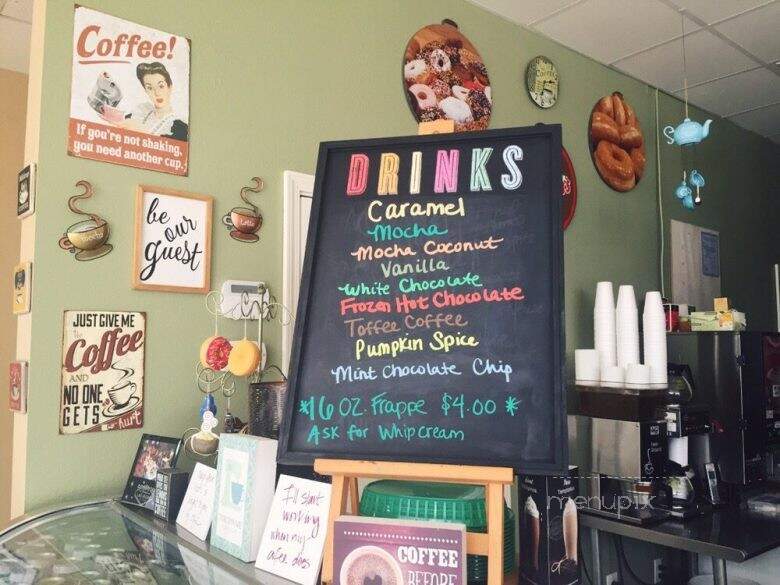 Coffee!
If you're not shaking,
you need another cup.
be
our
guest
JUST GIVE ME
the
Coffee
AND
NO ONE
GETS
hurt
DRINKS
Caramel
Mocha
Mocha Coconut
Vanilla
White Chocolate
Frozen Hot Chocolate
Toffee Coffee
Pumpkin Spice
Mint Chocolate Chip
*16 OZ. Frappe $4.00 *
Ask for Whipcream
I'll start
working
when my
coffee does
COFFEE
BEFORE
menupix